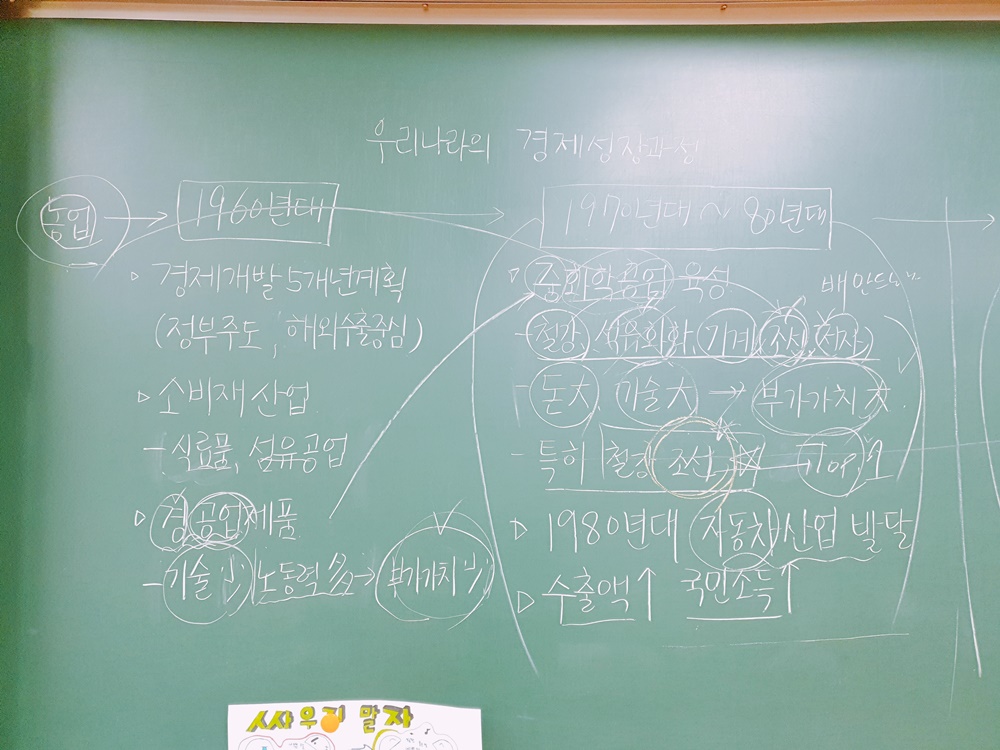 우리나라의 경제성장과정
농업 → 1960년대 →
▷ 경제개발 5개년계획
(정부주도, 해외수출중심)
▷ 소비재 산업
- 식료품, 섬유공업
▷ 경공업제품
- 기술 小 노동력 多 → 부가가치 小
1970년대 ~ 80년대 →
▷ 중화학공업 육성
배만드는
- 철강, 석유화학, 기계, 조선, 전자
- 돈大, 기술大 → 부가가치大.
- 특히 철강 조선 → Top
▷ 1980년대 자동차산업 발달
▷ 수출액↑ 국민소득↑
싸우지 말자